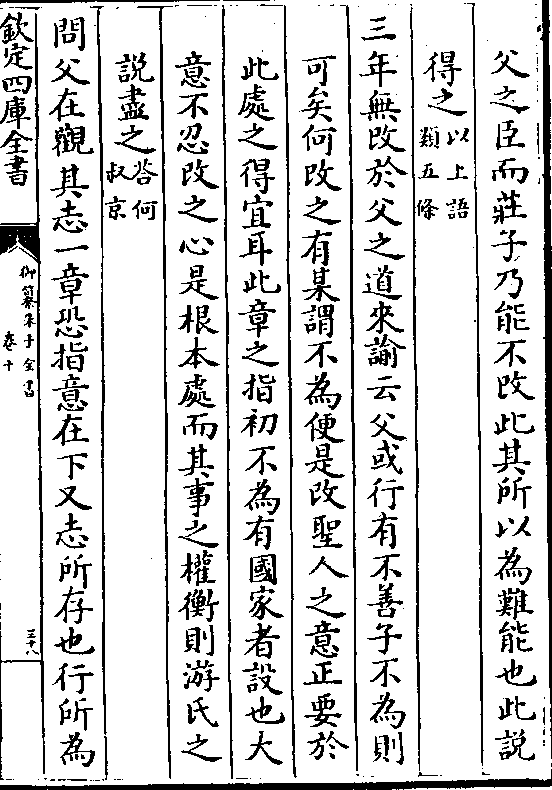 父之臣而莊子乃能不改此其所以為難能也此説
得之以上語
類五條
三年無改於父之道來諭云父或行有不善子不為則
可矣何改之有某謂不為便是改聖人之意正要於
此處之得宜耳此章之指初不為有國家者設也大
意不忍改之心是根本處而其事之權衡則游氏之
説盡之荅何
叔京
問父在觀其志一章恐指意在下又志所存也行所為
欽定四庫全書
御纂朱子全書
卷十
三十八